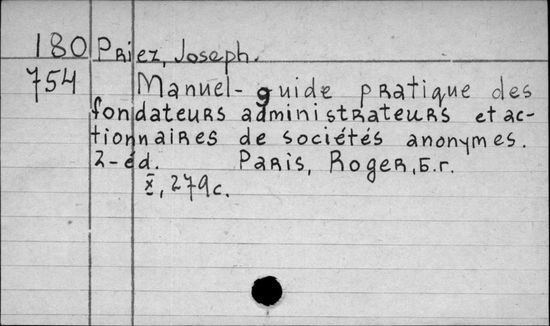 180 Priez, Joseph.
754 Manuel-guide pratique des
fondateurs administrateurs et ac-
tionnaires de sociétés anonymes.
2-éd. Paris, Roger, Б.г.
X, 279c.